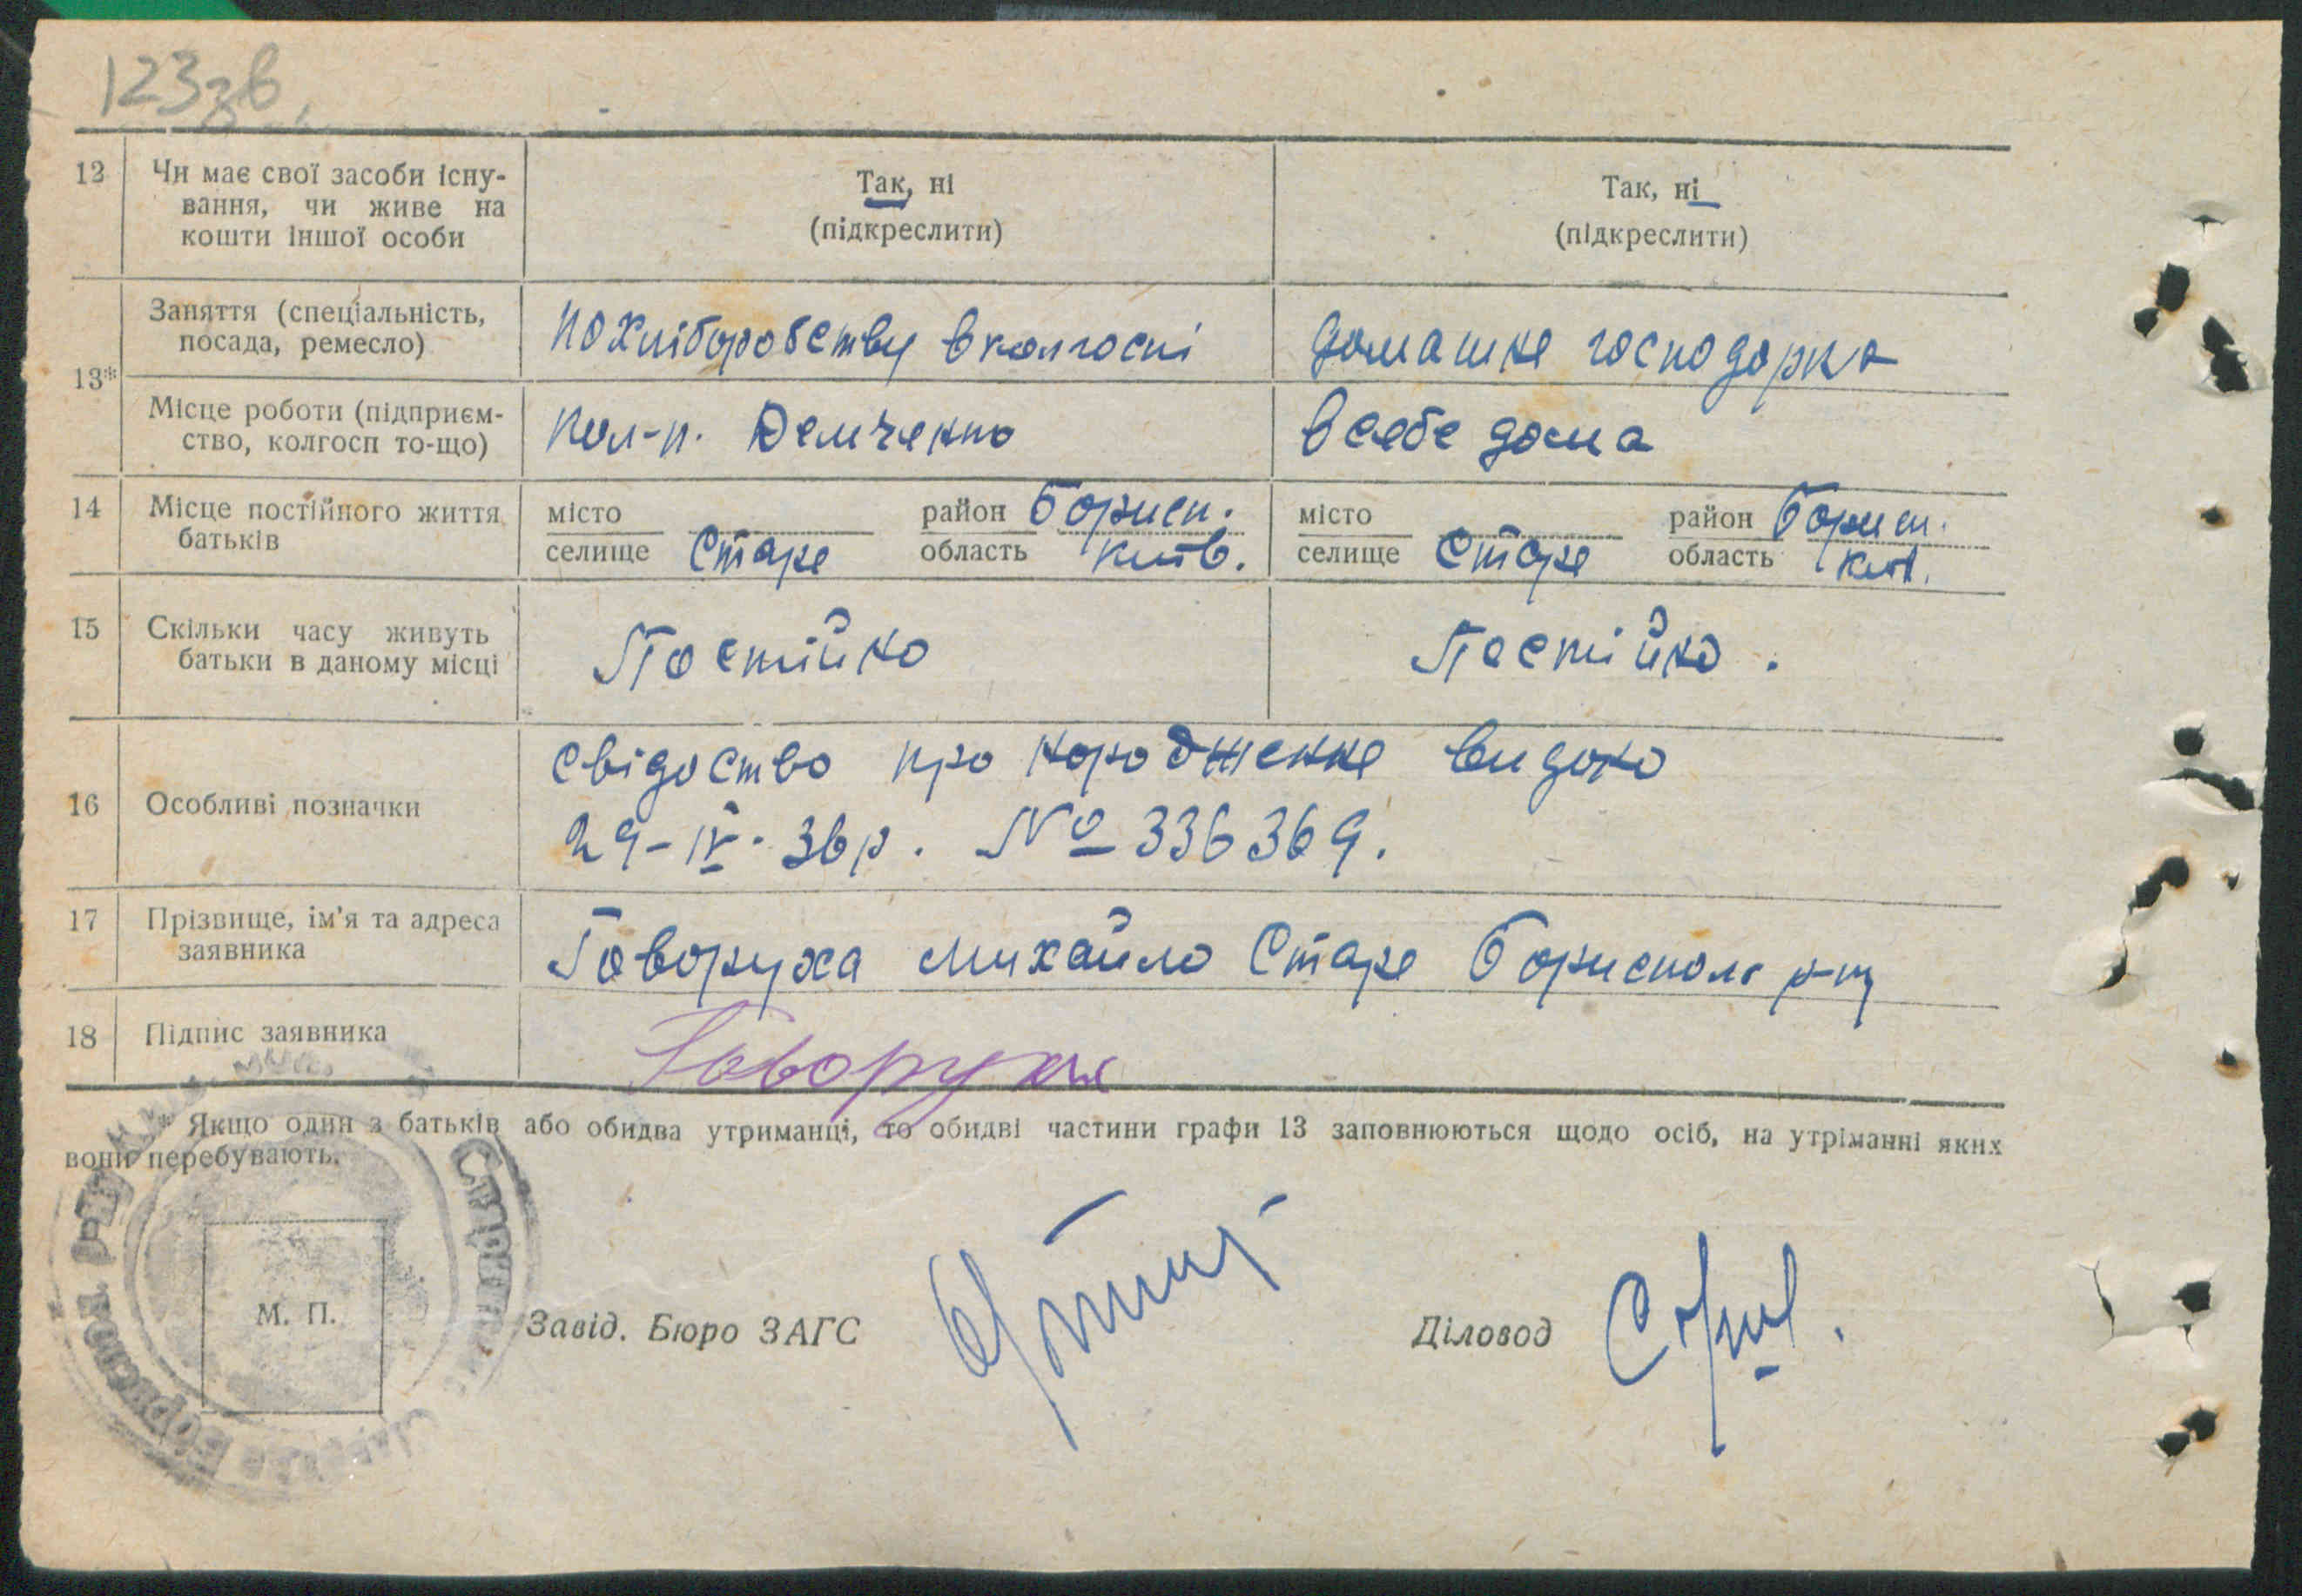 123зв.
12 Чи має свої засоби існу-
вання, чи живе на
кошти іншої особи
Так, ні
(підкреслити)
Так, ні
(підкреслити)
13*
Заняття (спеціальність,
посада, ремесло)
по хліборобству в колгоспі
домашнє господарка
Місце роботи (підприєм-
ство, колгосп то-що)
Демченко
в себе дома
14 Місце постійного життя
батьків
місто район Борисп.
селище Старе область Київ.
місто район Борисп.
селище Старе область Київ.
15 Скільки часу живуть
батьки в даному місці
Постійно
Постійно.
16 Особливі позначки
свідоство про народження видано
29-IV-36р. № 336369.
17 Прізвище, ім'я та адреса
заявника
Говоруха Михайло Старе Бориспол р-ну
18 Підпис заявника
Говоруха
* Якщо один з батьків або обидва утриманці, то обидві частини графи 13 заповнюються щодо осіб, на утріманні яких
вони перебувають.
М. П.
Завід. Бюро ЗАГС
Діловод